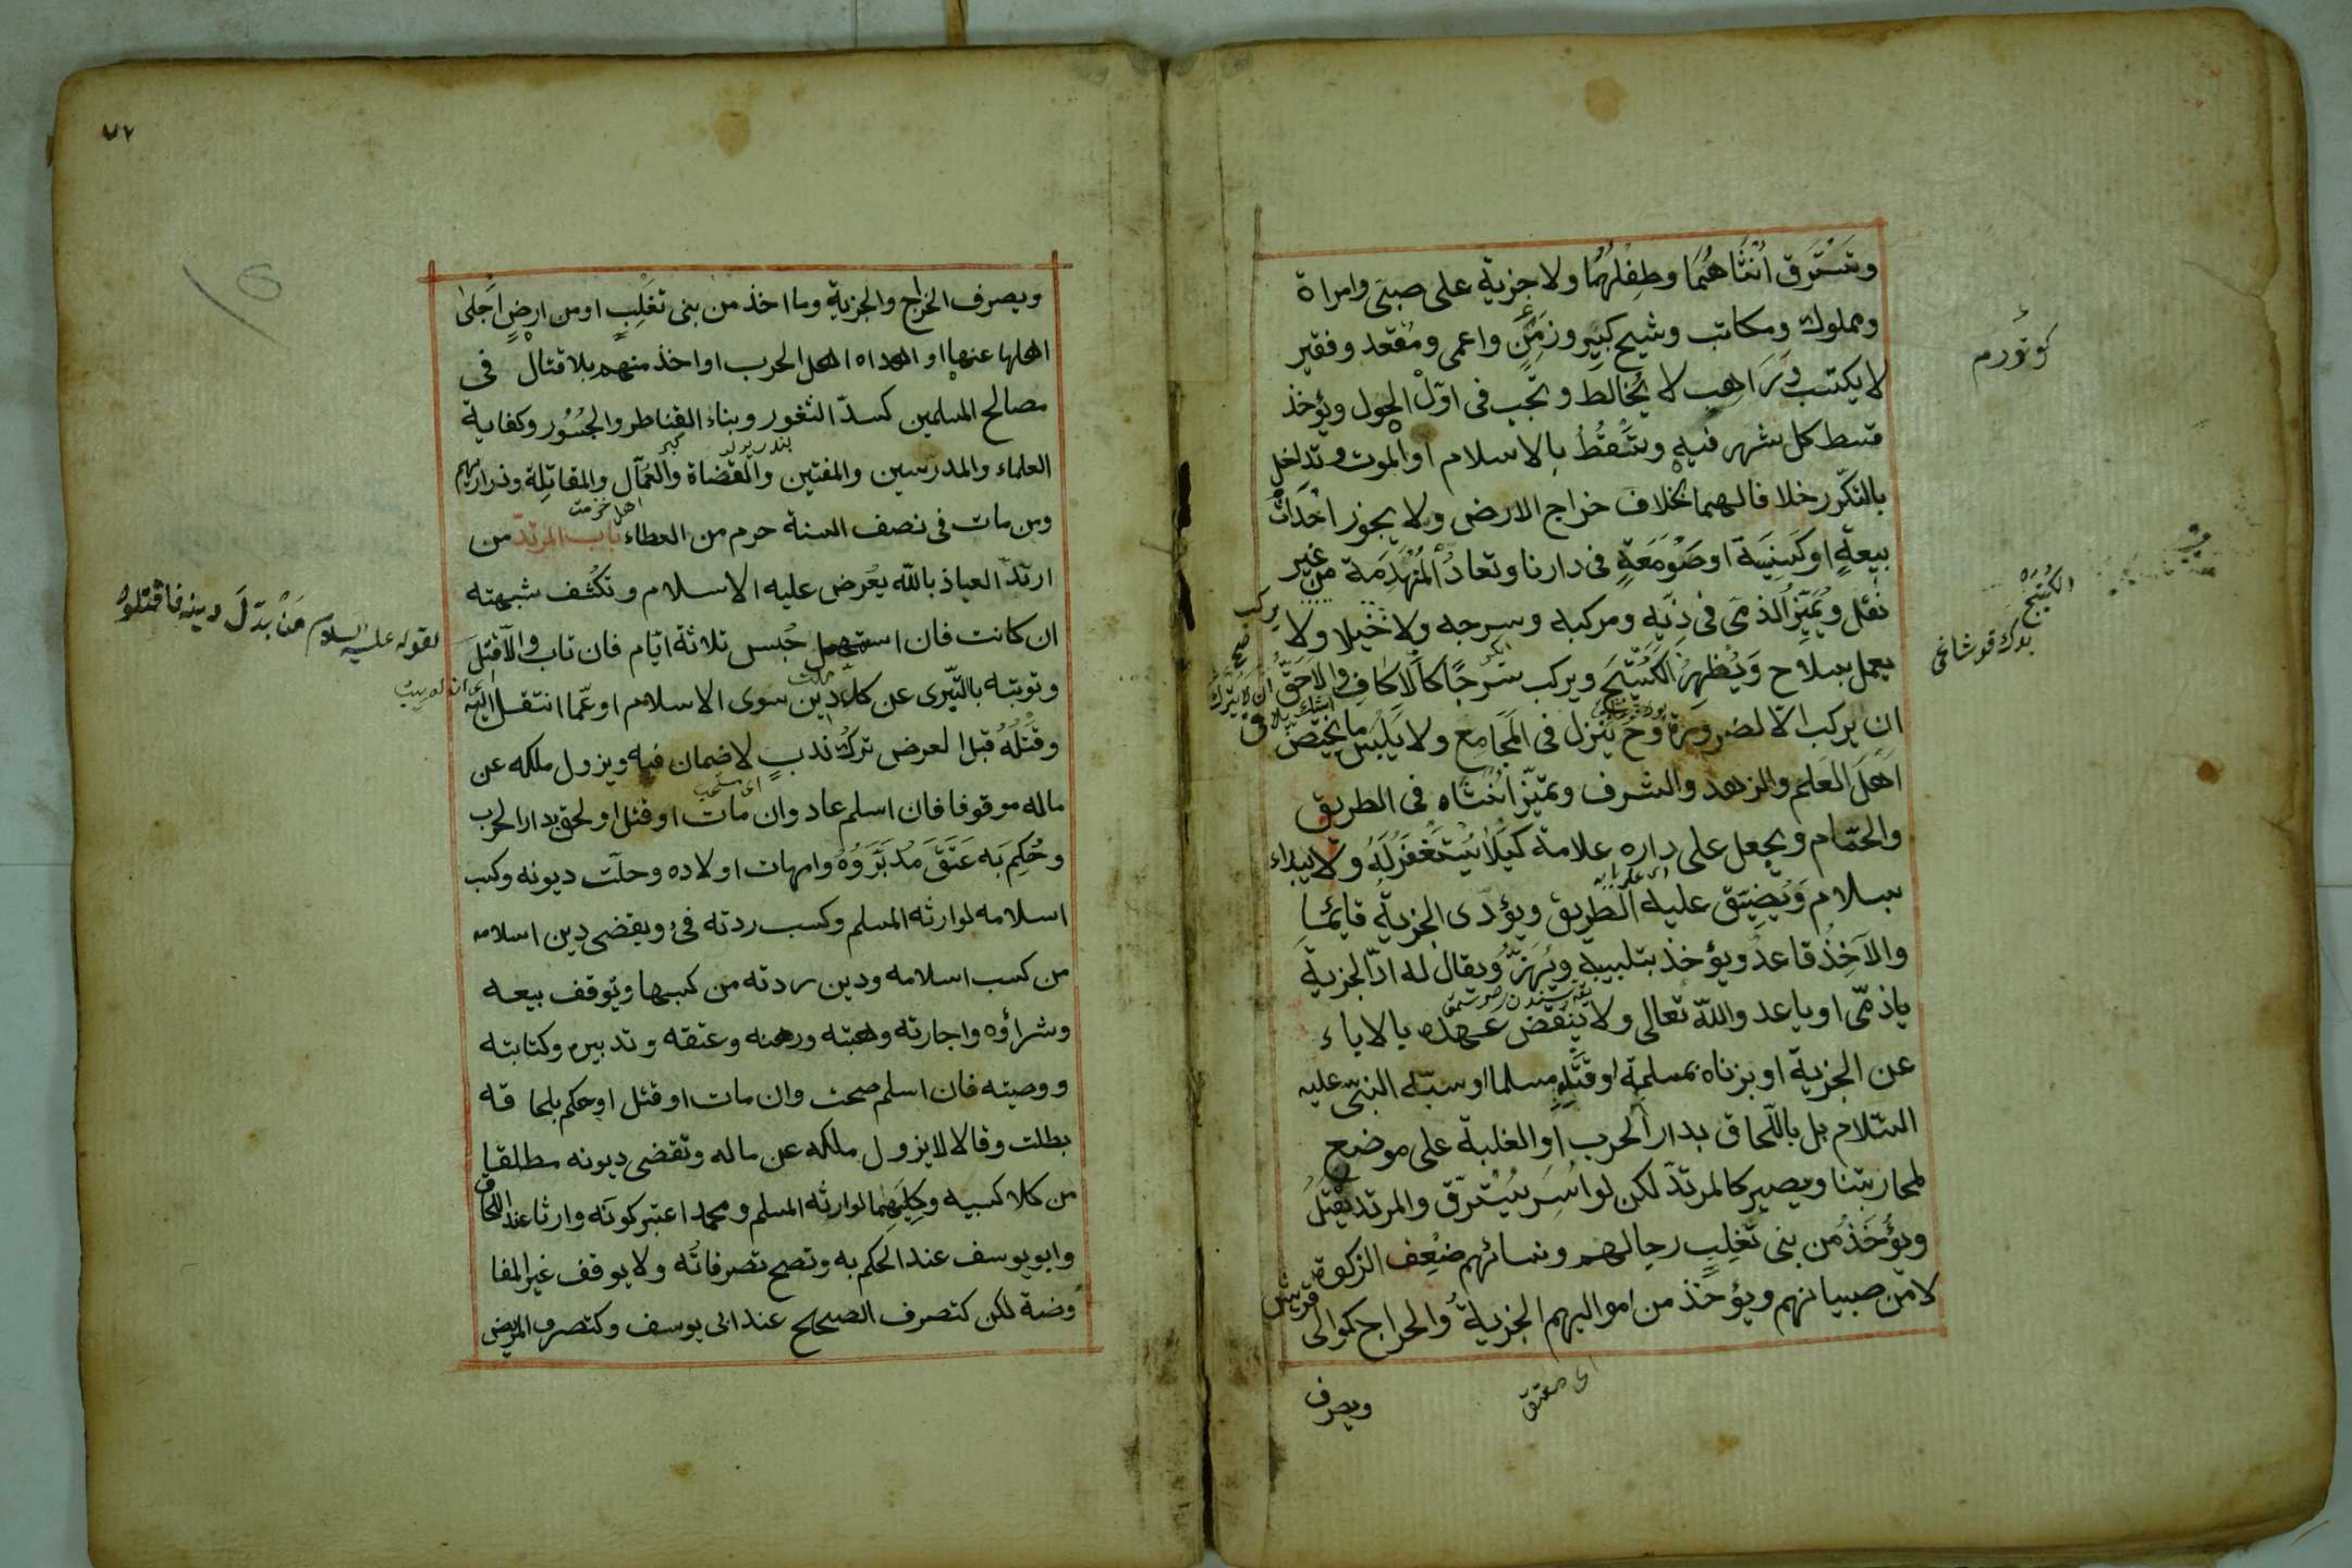 وتسترق انثاهما وطفلهما ولا جزية على صبى وامراة
ومملوك ومكاتب وشيخ كبير وزمن واعمى ومقعد وفقير
لا يكتسب وراهب لا يخالط وتجب فى اول الحول ويؤخذ
قسط كل شهر فيه وتسقط بالاسلام او الموت وتداخل
بالتكرر خلافا لهما بخلاف خراج الارض ولا يجوز احداث
بيعة او كنيسة او صومعة فى دارنا وتعاد المنهدمة من غير
نقل ويميز الذمى فى زيه ومركبه وسرجه ولا خيلا ولا يركب
يعمل بسلاح ويظهر الكستيج ويركب سرجا كالاكاف والاحق ان لا يترك
ان يركب الا لضرورة وح ينزل فى المجامع ولا يلبس ما يخص
اهل العلم والزهد والشرف وتميز انثاه فى الطريق
والحمام ويجعل على داره علامة كيلا يستغفر له ولا يبداء
بسلام ويضيق عليه الطريق ويؤدى الجزية قائما
والآخذ قاعد ويؤخذ بتلبيبه ويهز ويقال له اد الجزية
ياذمى او ياعد والله تعالى ولا ينقض عهده بالاباء
عن الجزية او بزناه بمسلمة او قتله مسلما او سبه النبى عليه
السلام بل باللحاق بدار الحرب او الغلبة على موضع
لمحاربتنا ويصير كالمرتد لكن لو اسر يسترق والمرتد يقتل
ويؤخذ من بنى تغلب رجالهم ونسائهم ضعف الزكوة
لا من صبيانهم ويؤخذ من مواليهم الجزية والخراج كموالى قريش
اى معتق
ويصرف
كوتورم
الكستيج
بدك قوشاغى
٧٢
ويصرف الخراج والجزية وما اخذ من بنى تغلب او من ارض اجلى
اهلها عنها او اهداه اهل الحرب او اخذ منهم بلا قتال فى
مصالح المسلمين كسد الثغور وبناء القناطر والجسور وكفاية
العلماء والمدرسين والمفتين والقضاة والعمال والمقاتلة وذراريهم
ومن مات فى نصف السنة حرم من العطاء باب المرتد من
ارتد العياذ بالله يعرض عليه الاسلام وتكشف شبهته
ان كانت فان استمهل حبس ثلاثة ايام فان تاب والا قتل
وتوبته بالتبرى عن كل دين سوى الاسلام او عما انتقل اليه
وقتله قبل العرض ترك ندب لا ضمان فيه ويزول ملكه عن
ماله موقوفا فان اسلم عاد وان مات او قتل او لحق بدار الحرب
وحكم به عتق مدبروه وامهات اولاده وحلت ديونه وكسب
اسلامه لوارثه المسلم وكسب ردته فئ ويقضى دين اسلامه
من كسب اسلامه ودين ردته من كسبها ويوقف بيعه
وشراؤه واجارته وهبته ورهنه وعتقه وتدبيره وكتابته
ووصيته فان اسلم صحت وان مات او قتل او حكم بلحاقه
بطلت وقالا لا يزول ملكه عن ماله وتقضى ديونه مطلقا
من كلا كسبيه وكليهما لوارثه المسلم ومحمد اعتبر كونه وارثا عند اللحاق
وابو يوسف عند الحكم به وتصح تصرفاته ولا يوقف غير المفا
وضة لكن كتصرف الصحيح عند ابى يوسف وكتصرف المريض
لقوله عليه السلام من بدل دينه فاقتلوه